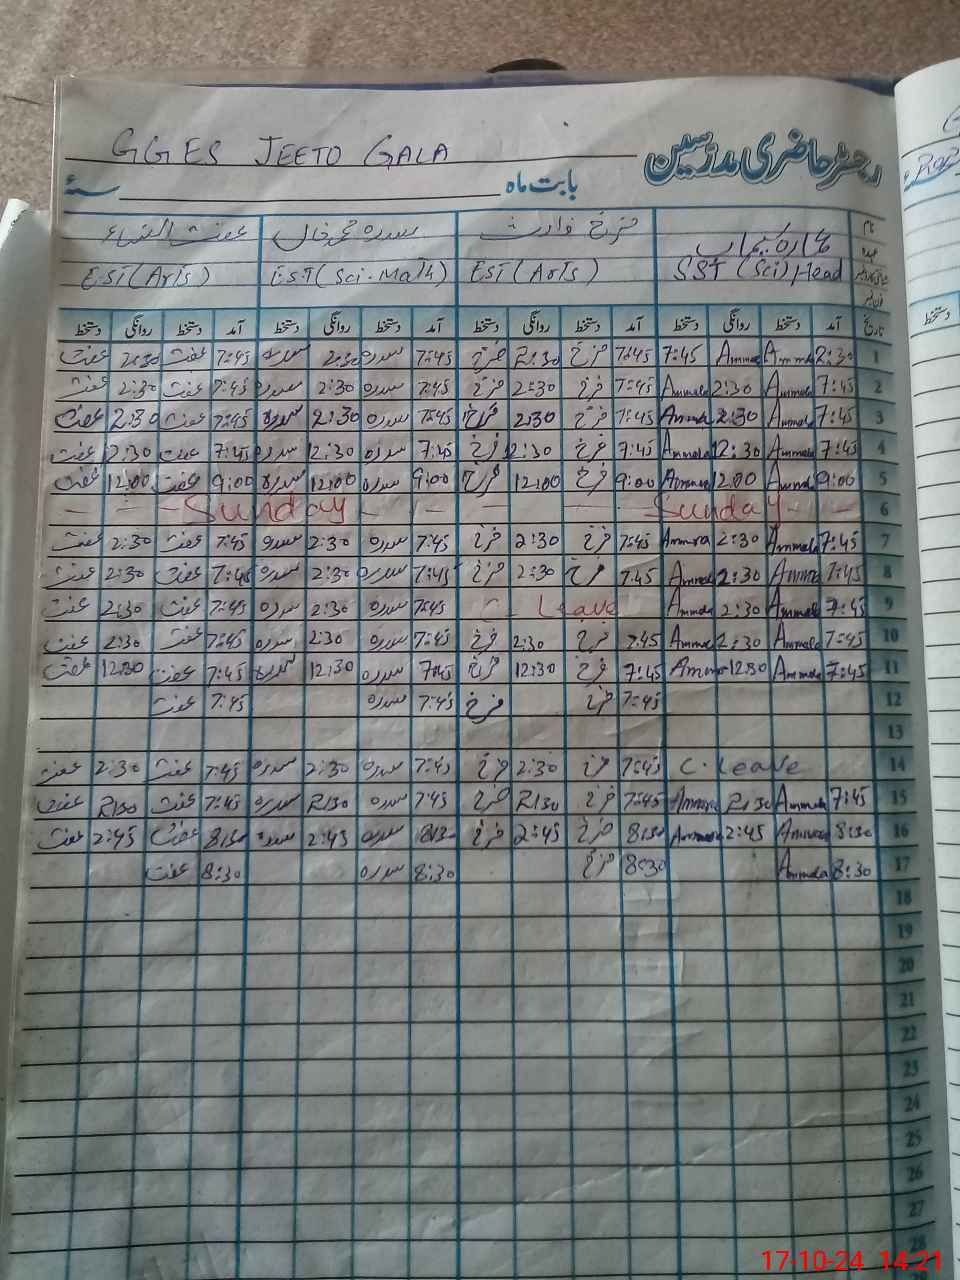 GGES JEETO GALA رجسٹر حاضری مدرسین
بابت ماہ سنہء
نام فرخ وارث سدرہ محمد خان عفت النساء
عہدہ SST (Sci) Head EST (Arts) EST (Sci-Math) EST (Arts)
تاریخ آمد دستخط روانگی دستخط آمد دستخط روانگی دستخط آمد دستخط روانگی دستخط آمد دستخط روانگی دستخط
1 2:30 Ammala Ammala 7:45 7:45 فرخ 2:30 فرخ 7:45 سدرہ 2:30 سدرہ 7:45 عفت 2:30 عفت
2 7:45 Ammala 2:30 Ammala 7:45 فرخ 2:30 فرخ 7:45 سدرہ 2:30 سدرہ 7:45 عفت 2:30 عفت
3 7:45 Ammala 2:30 Ammala 7:45 فرخ 2:30 فرخ 7:45 سدرہ 2:30 سدرہ 7:45 عفت 2:30 عفت
4 7:45 Ammala 12:30 Ammala 7:45 فرخ 12:30 فرخ 7:45 سدرہ 12:30 سدرہ 7:45 عفت 12:30 عفت
5 9:00 Ammala 12:00 Ammala 9:00 فرخ 12:00 فرخ 9:00 سدرہ 12:00 سدرہ 9:00 عفت 12:00 عفت
6 Sunday Sunday
7 7:45 Ammala 2:30 Ammala 7:45 فرخ 2:30 فرخ 7:45 سدرہ 2:30 سدرہ 7:45 عفت 2:30 عفت
8 7:45 Ammala 2:30 Ammala 7:45 فرخ 2:30 فرخ 7:45 سدرہ 2:30 سدرہ 7:45 عفت 2:30 عفت
9 7:45 Ammala 2:30 Ammala C. Leave 7:45 سدرہ 2:30 سدرہ 7:45 عفت 2:30 عفت
10 7:45 Ammala 2:30 Ammala 7:45 فرخ 2:30 فرخ 7:45 سدرہ 2:30 سدرہ 7:45 عفت 2:30 عفت
11 7:45 Ammala 12:30 Ammala 7:45 فرخ 12:30 فرخ 7:45 سدرہ 12:30 سدرہ 7:45 عفت 12:30 عفت
12 7:45 فرخ فرخ 7:45 سدرہ 7:45 عفت
13
14 C. Leave 7:45 فرخ 2:30 فرخ 7:45 سدرہ 2:30 سدرہ 7:45 عفت 2:30 عفت
15 7:45 Ammala 2:30 Ammala 7:45 فرخ 2:30 فرخ 7:45 سدرہ 2:30 سدرہ 7:45 عفت 2:30 عفت
16 8:30 Ammala 2:45 Ammala 8:30 فرخ 2:45 فرخ 8:30 سدرہ 2:45 سدرہ 8:30 عفت 2:45 عفت
17 8:30 Ammala 8:30 فرخ 8:30 سدرہ 8:30 عفت
18
19
20
21
22
23
24
25
26
27
28
17-10-24 14:21